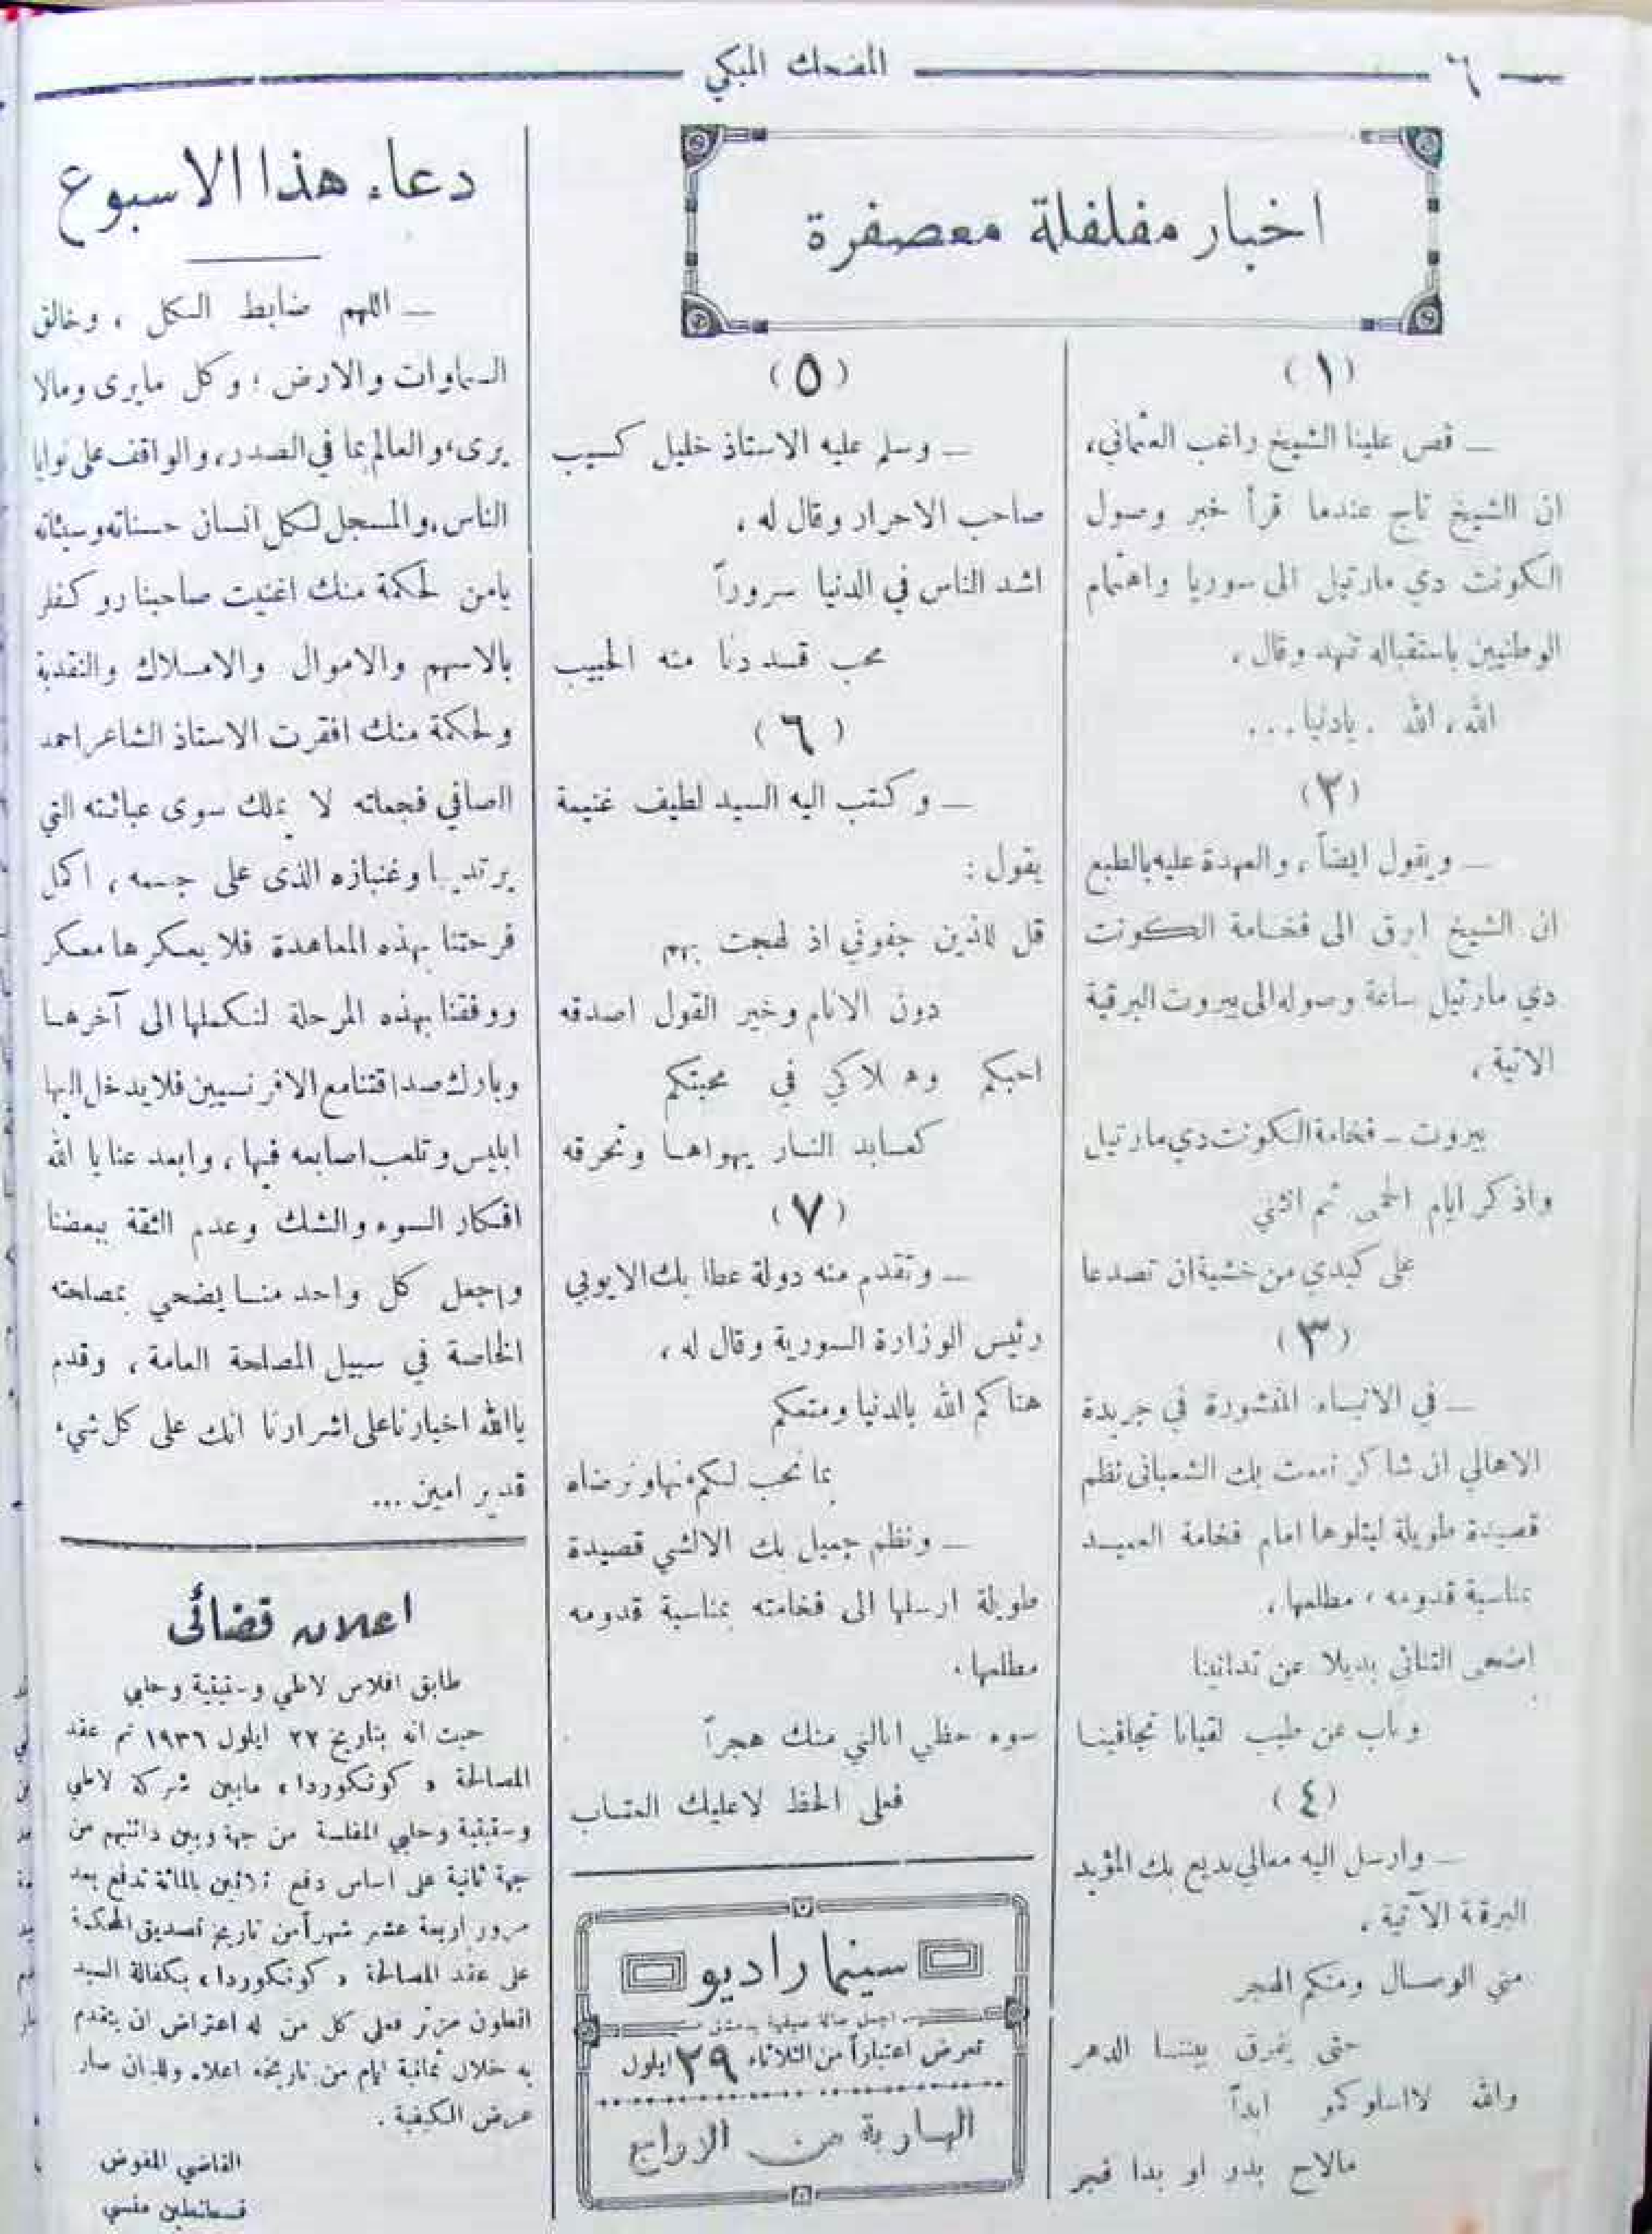 ٦
المضحك المبكي
اخبار مفلفلة معصفرة
(١)
— قص علينا الشيخ راغب العثماني،
ان الشيخ تاج عندما قرأ خبر وصول
الكونت دي مارتيل الى سوريا واهتمام
الوطنيين باستقباله تنهد وقال ،
الله ، الله . يادنيا ...
(٢)
— ويقول ايضاً ، والعهدة عليه بالطبع
ان الشيخ ابرق الى فخامة الكونت
دي مارتيل ساعة وصوله الى بيروت البرقية
الاتية ،
بيروت — فخامة الكونت دي مارتيل
واذكر ايام الحمى ثم انثني
على كبدي من خشية ان تصدعا
(٣)
— في الانباء المنشورة في جريدة
الاهالي ان شاكر نعمت بك الشعباني نظم
قصيدة طويلة ليتلوها امام فخامة العميد
بمناسبة قدومه ، مطلعها ،
اضحى التنائي بديلا عن تدانينا
وناب عن طيب لقيانا تجافينا
(٤)
— وارسل اليه معالي بديع بك المؤيد
البرقة الآتية ،
مني الوصال ومنكم الهجر
حتى يفرق بيننا الدهر
والله لااسلوكمو ابداً
مالاح بدر او بدا فجر
(٥)
— وسلم عليه الاستاذ خليل كسيب
صاحب الاحرار وقال له ،
اشد الناس في الدنيا سروراً
محب قد دنا منه الحبيب
(٦)
— وكتب اليه السيد لطيف غنيمة
يقول :
قل للذين جفوني اذ لهجت بهم
دون الانام وخير القول اصدقه
احبكم وهلاكي في محبتكم
كعابد النار يهواها وتحرقه
(٧)
— وتقدم منه دولة عطا بك الايوبي
رئيس الوزارة السورية وقال له ،
هناكم الله بالدنيا ومتعكم
بما نحب لكم منها ونرضاه
— ونظم جميل بك الالشي قصيدة
طويلة ارسلها الى فخامته بمناسبة قدومه
مطلعها ،
سوء حظي انالني منك هجراً
فعلى الحظ لاعليك العتاب
سينما راديو
اجمل صالة صيفية بدمشق
تعرض اعتباراً من الثلاثاء ٢٩ ايلول
الهاربة من الزواج
دعاء هذا الاسبوع
— اللهم ضابط الكل ، وخالق
السماوات والارض ؛ وكل مايرى ومالا
يرى، والعالم بما في الصدر، والواقف على نوايا
الناس، والمسجل لكل انسان حسناته وسيئاته
يامن لحكمة منك اغنيت صاحبنا روكفلر
بالاسهم والاموال والاملاك والنقدية
ولحكمة منك افقرت الاستاذ الشاعر احمد
الصافي فجعلته لا يملك سوى عبائته التي
يرتديها وغنبازه الذى على جسمه ، اكمل
فرحتنا بهذه المعاهدة فلا يعكرها معكر
ووفقنا بهذه المرحلة لنكملها الى آخرها
وبارك صداقتنا مع الافرنسيين فلا يدخل اليها
ابليس وتلعب اصابعه فيها ، وابعد عنا يا الله
افكار السوء والشك وعدم الثقة ببعضنا
واجعل كل واحد منا يضحي بمصلحته
الخاصة في سبيل المصلحة العامة ، وقدم
ياالله اخيارنا على اشرارنا انك على كل شيء
قدير امين ...
اعلان قضائى
طابق افلاس لاطي وسقيقية وحلبي
حيث انه بتاريخ ٢٢ ايلول ١٩٣٦ تم عقد
المصالحة « كونكوردا » مابين شركة لاطي
وسقيقية وحلبي المفلسة من جهة وبين دائنيهم من
جهة ثانية على اساس دفع ثلاثين بالمائة تدفع بعد
مرور اربعة عشر شهراً من تاريخ تصديق المحكمة
على عقد المصالحة « كونكوردا » بكفالة السيد
انطون مزنر فعلى كل من له اعتراض ان يتقدم
به خلال ثمانية ايام من تاريخه اعلاه وللبيان صار
عرض الكيفية .
القاضي المفوض
قسطنطين منسي